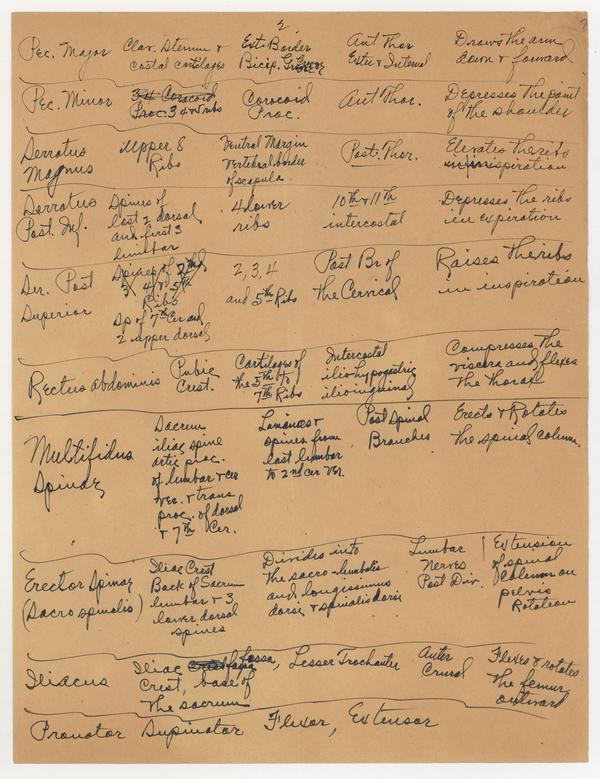 2
Pec. Major Clav. Sternum & costal cartilages Ext. Border Bicip. Groove Ant Thor Exter & Internal Draws the arm down & forward
Pec. Minor 3 4 Coracoid Proc. 3 4 & 5 ribs Coracoid Proc. Ant Thor. Depresses the point of the shoulder
Serratus Magnus Upper 8 Ribs Ventral Margin Vertebral border of scapula Post. Thor. Elevates the ribs in inspiration
Serratus Post. Inf. Spines of last 2 dorsal and first 3 lumbar 4 lower ribs 10th & 11th intercostal Depresses the ribs in expiration
Ser. Post Superior Spines of 2nd, 3 4 & 5th Ribs Sp of 7th Cer and 2 upper dorsal 2, 3, 4 and 5th Ribs Post Br of the Cervical Raises the ribs in inspiration
Rectus abdominis Pubic Crest. Cartilages of the 5th to 7th Ribs Intercostal iliohypogastric ilioinguinal Compresses the viscera and flexes the thorax
Multifidus Spinae Sacrum iliac spine artic proc. of lumbar & cer ver. & trans proc. of dorsal & 7th Cer. Laminaes & spines from last lumbar to 2nd cer ver. Post Spinal Branches Erects & Rotates the spinal column.
Erector Spinae (Sacro spinalis) Iliac Crest Back of Sacrum lumbar & 3 lower dorsal spines Divides into the sacro-lumbalis and longissimus dorsi & spinalis dorsi Lumbar Nerves Post Div. Extension of spinal Column on pelvis Rotation
Iliacus Iliac fossa, Crest, base of the sacrum Lesser Trochanter Anter Crural Flexes & rotates the femur outward
Pronator Supinator Flexor, Extensor